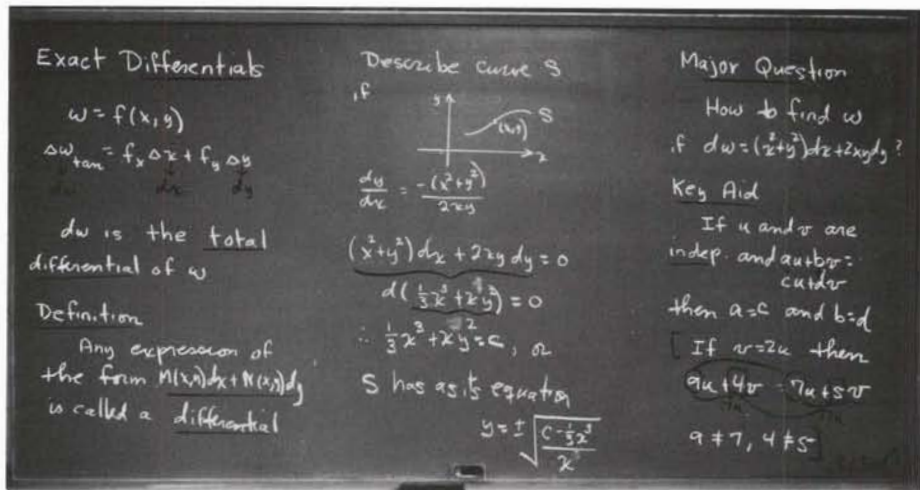 Exact Differentials
w = f(x, y)
Δw_tan = f_x Δx + f_y Δy
dw dx dy
dw is the total
differential of w
Definition
Any expression of
the form M(x,y)dx + N(x,y)dy
is called a differential
Describe curve S
if
y
S
(x,y)
x
dy/dx = -(x²+y²)/2xy
(x²+y²)dx + 2xy dy = 0
d(⅓x³ + xy²) = 0
∴ ⅓x³ + xy² = C, or
S has as its equation
y = ± √((C - ⅓x³)/x)
Major Question
How to find w
if dw = (x²+y²)dx + 2xy dy ?
Key Aid
If u and v are
indep. and au+bv =
cu+dv
then a=c and b=d
[If v=2u then
9u+4v = 7u+5v
9≠7, 4≠5]